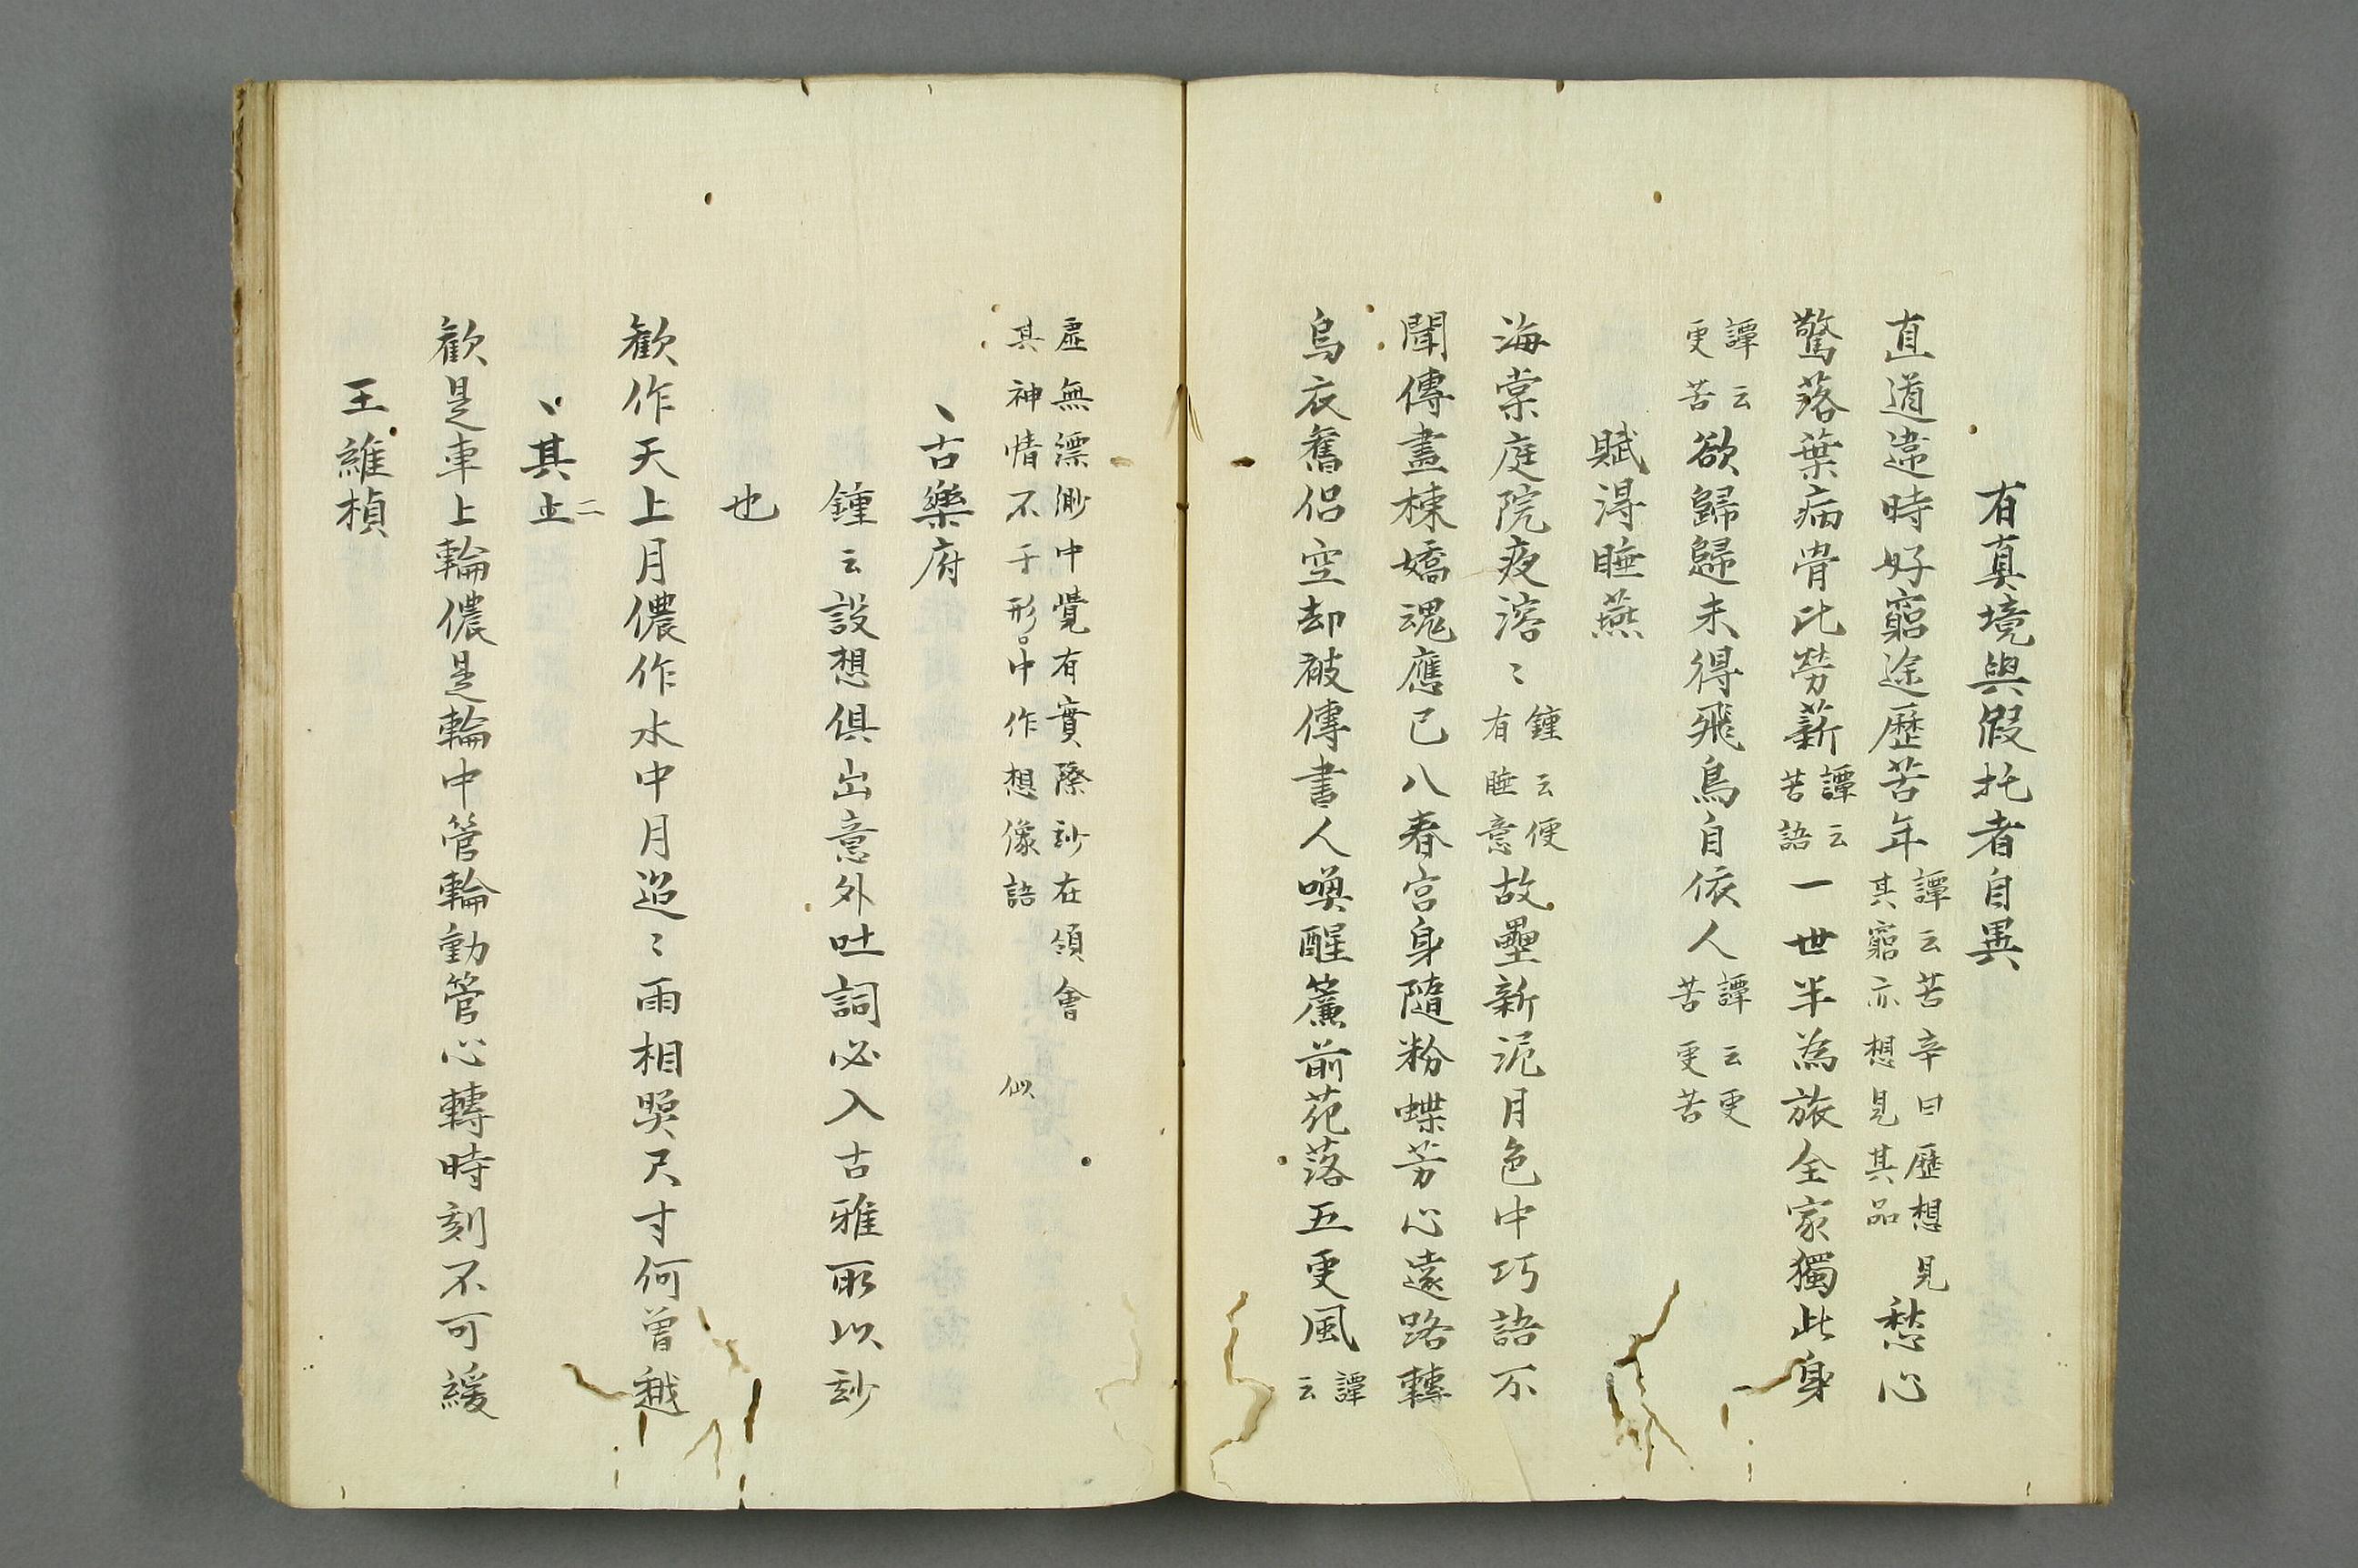 有真境與假托者自異
直道違時好窮途歷苦年譚云苦辛曰歷想見其窮亦想見其品愁心
驚落葉病骨比勞薪譚云苦語一世半為旅全家獨此身
譚云更苦欲歸歸未得飛鳥自依人譚云更苦更苦
賦得睡燕
海棠庭院夜溶〻鍾云便有睡意故壘新泥月色中巧語不
聞傳畫棟嬌魂應已入春宮身隨粉蝶芳心遠路轉
烏衣舊侶空却被傳書人喚醒簾前花落五更風譚云
虛無漂渺中覺有實際玅在領會其神情不于形中作想像語 似
丶古樂府
鍾云設想俱出意外吐詞必入古雅所以玅
也
歡作天上月儂作水中月迢〻兩相照尺寸何曾越
丶其二
歡是車上輪儂是輪中管輪動管心轉時刻不可緩
王維楨